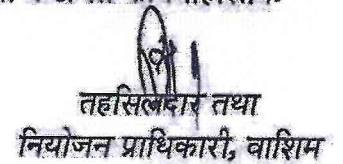 तहसिलदार तथा
नियोजन प्राधिकारी, वाशिम